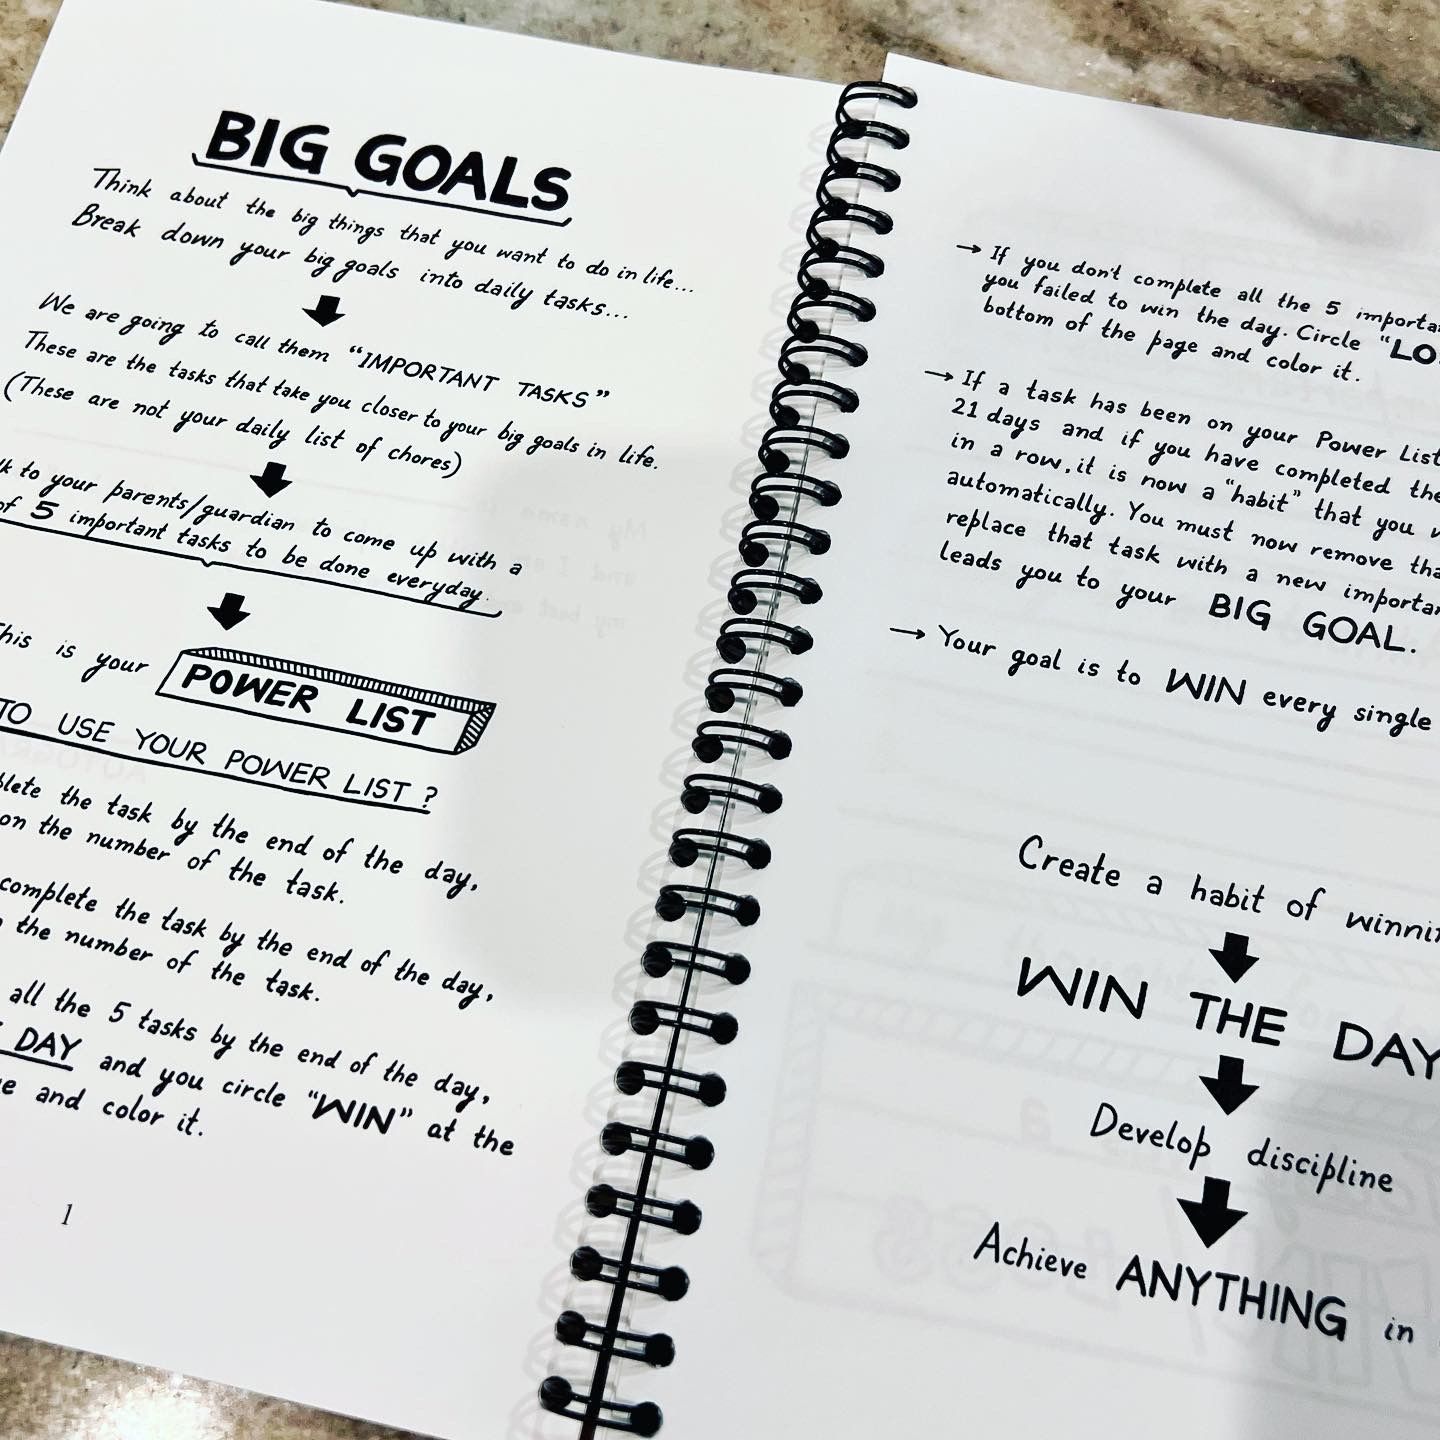 BIG GOALS
Think about the big things that you want to do in life...
Break down your big goals into daily tasks...
We are going to call them "IMPORTANT TASKS"
These are the tasks that take you closer to your big goals in life.
(These are not your daily list of chores)
to your parents/guardian to come up with a
of 5 important tasks to be done everyday.
This is your POWER LIST
TO USE YOUR POWER LIST ?
the task by the end of the day,
on the number of the task.
complete the task by the end of the day,
the number of the task.
all the 5 tasks by the end of the day,
DAY and you circle "WIN" at the
and color it.
1
→ If you don't complete all the 5
you failed to win the day. Circle "
bottom of the page and color it.
→ If a task has been on your Power List
21 days and if you have completed
in a row, it is now a "habit" that you
automatically. You must now remove
replace that task with a new
leads you to your BIG GOAL.
→ Your goal is to WIN every single
Create a habit of
WIN THE DAY
Develop discipline
Achieve ANYTHING in